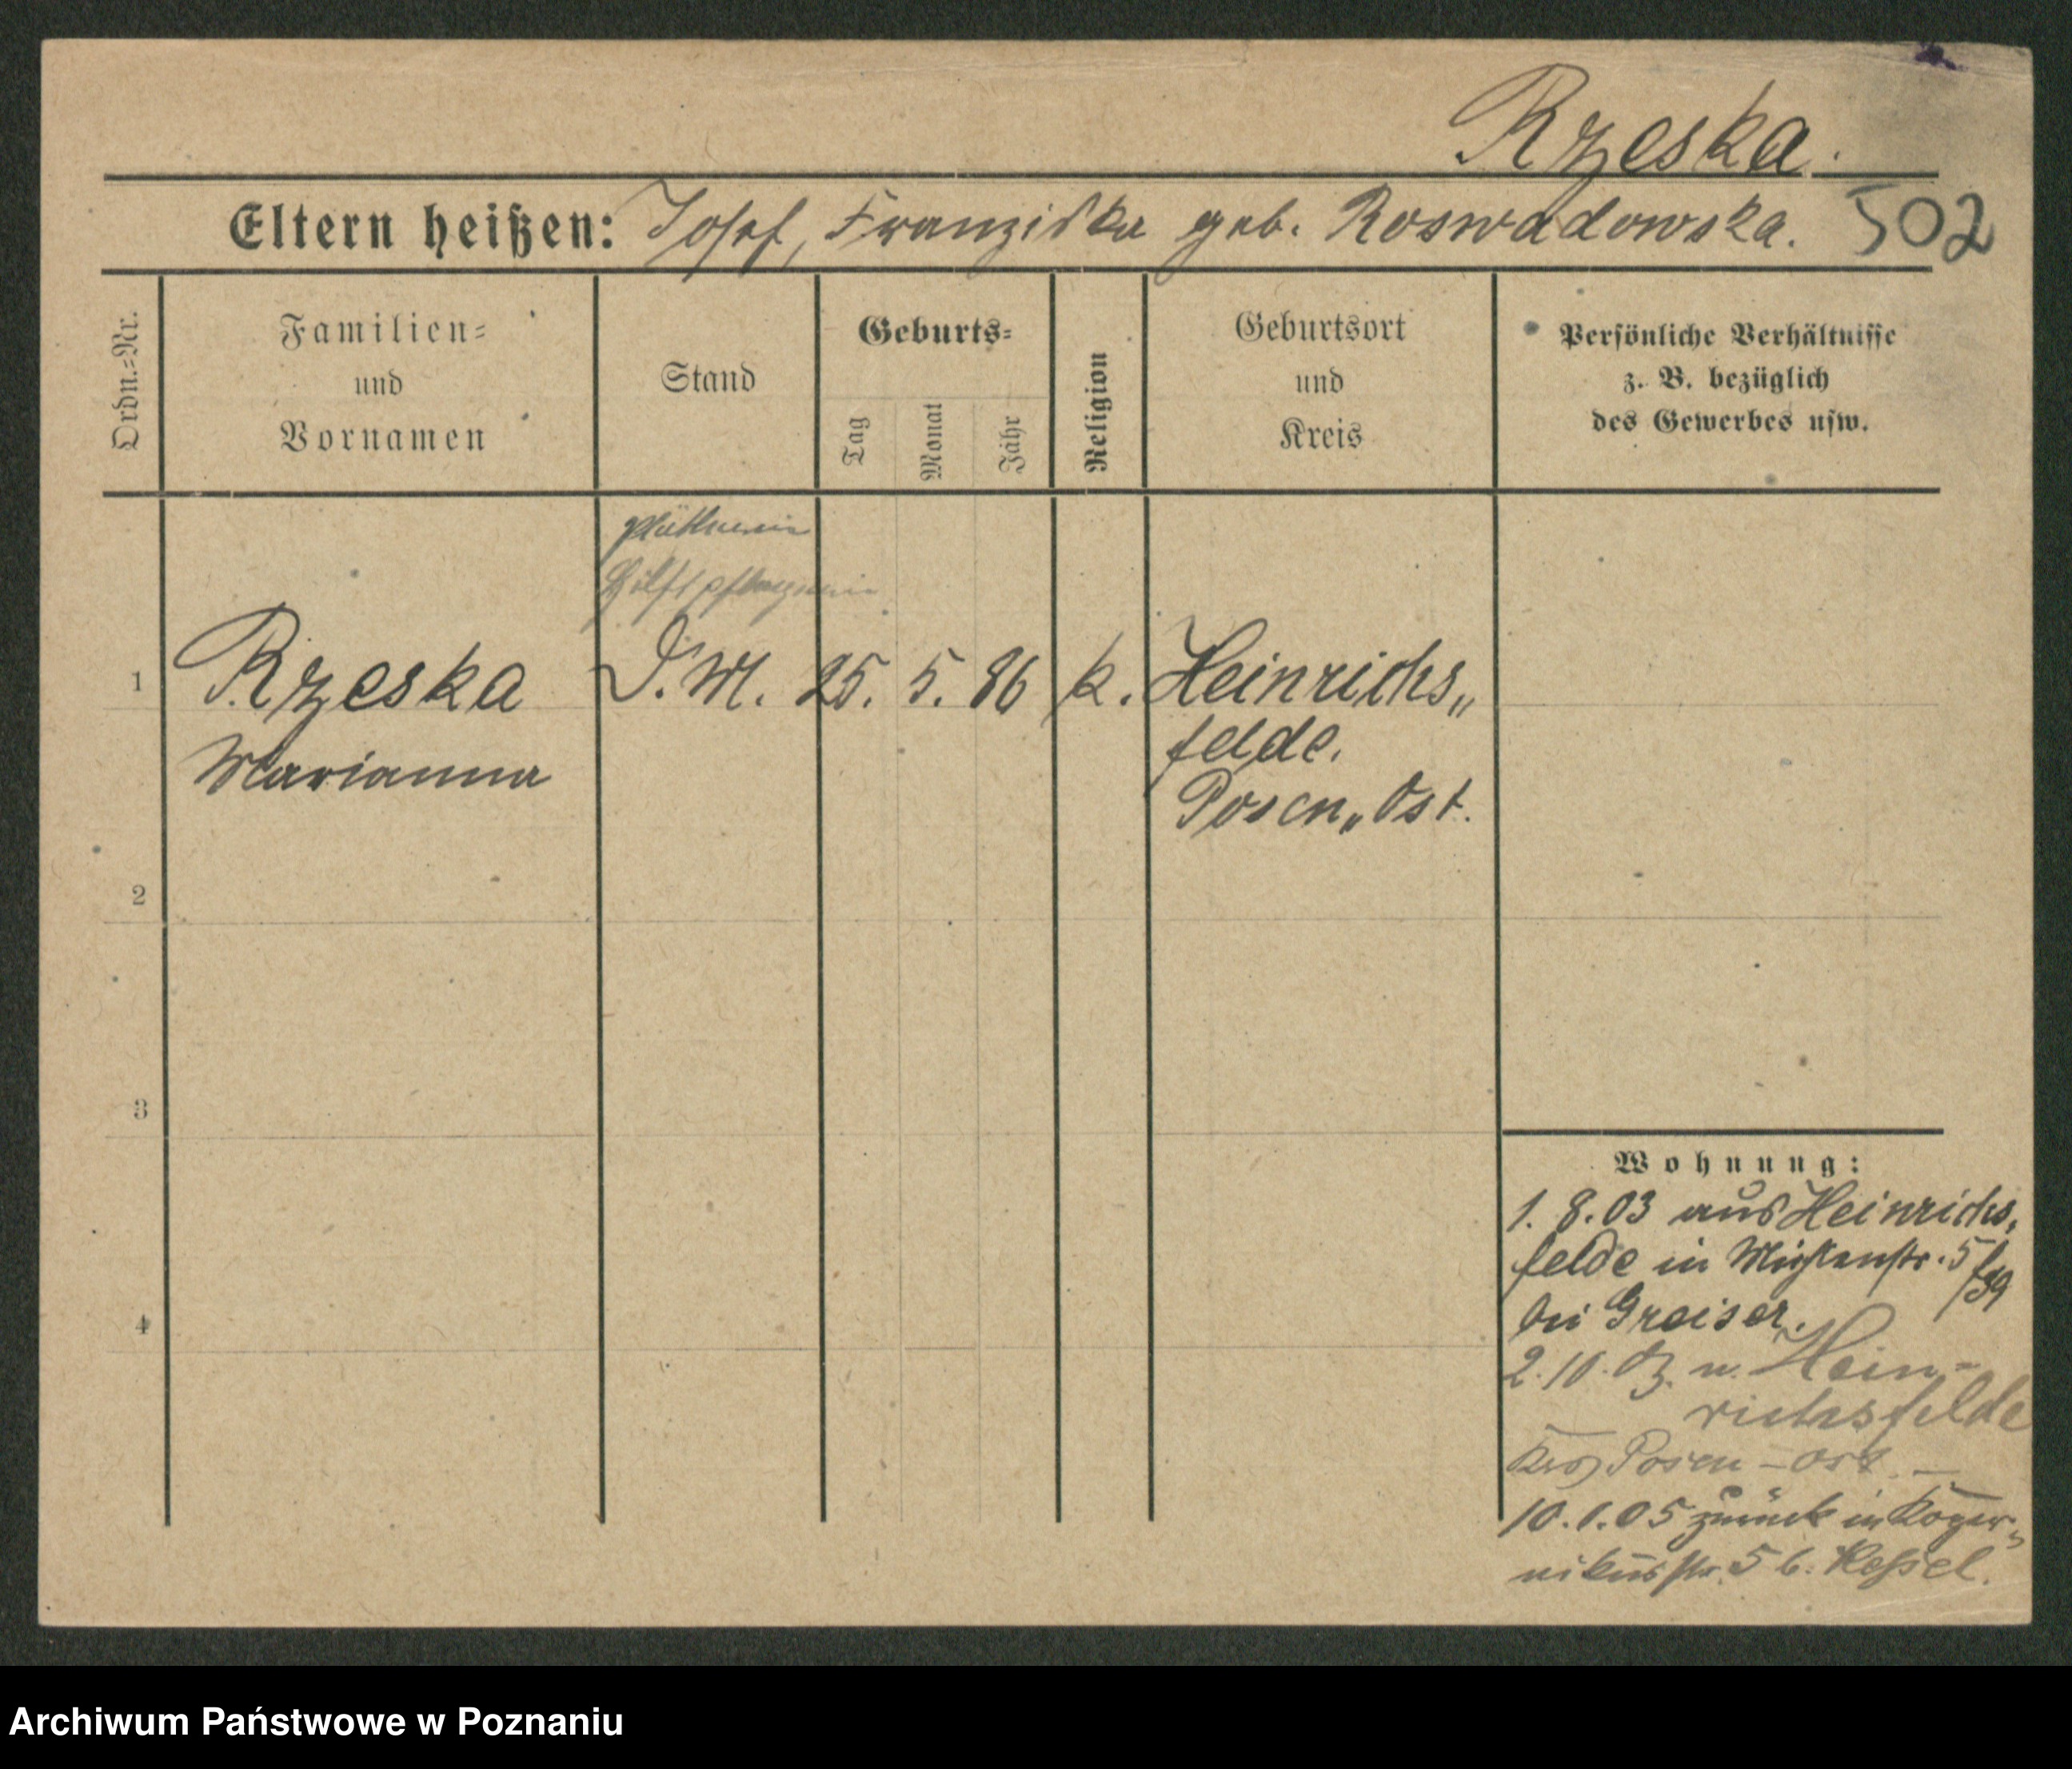 Rzeska.
Eltern heißen: Josef, Franziska geb. Roswadowska. 502
Ordn.=Nr.
Familien=
und
Vornamen
Stand
Geburts=
Tag
Monat
Jahr
Religion
Geburtsort
und
Kreis
Persönliche Verhältnisse
z. B. bezüglich
des Gewerbes usw.
Plätterin
Hilfspflegerin
1 Rzeska D. M. 25. 5. 86 k. Heinrichs„
Marianna felde.
Posen„Ost.
2
3
4
Wohnung:
1. 8. 03 aus Heinrichs,
felde in 5
bei Greiser.
2. 10. 03. n. Hein-
richsfelde
Krs Posen-Ost
10.1.05 zurück in Koper„
nikusstr. 5 b. Kessel.
Archiwum Państwowe w Poznaniu